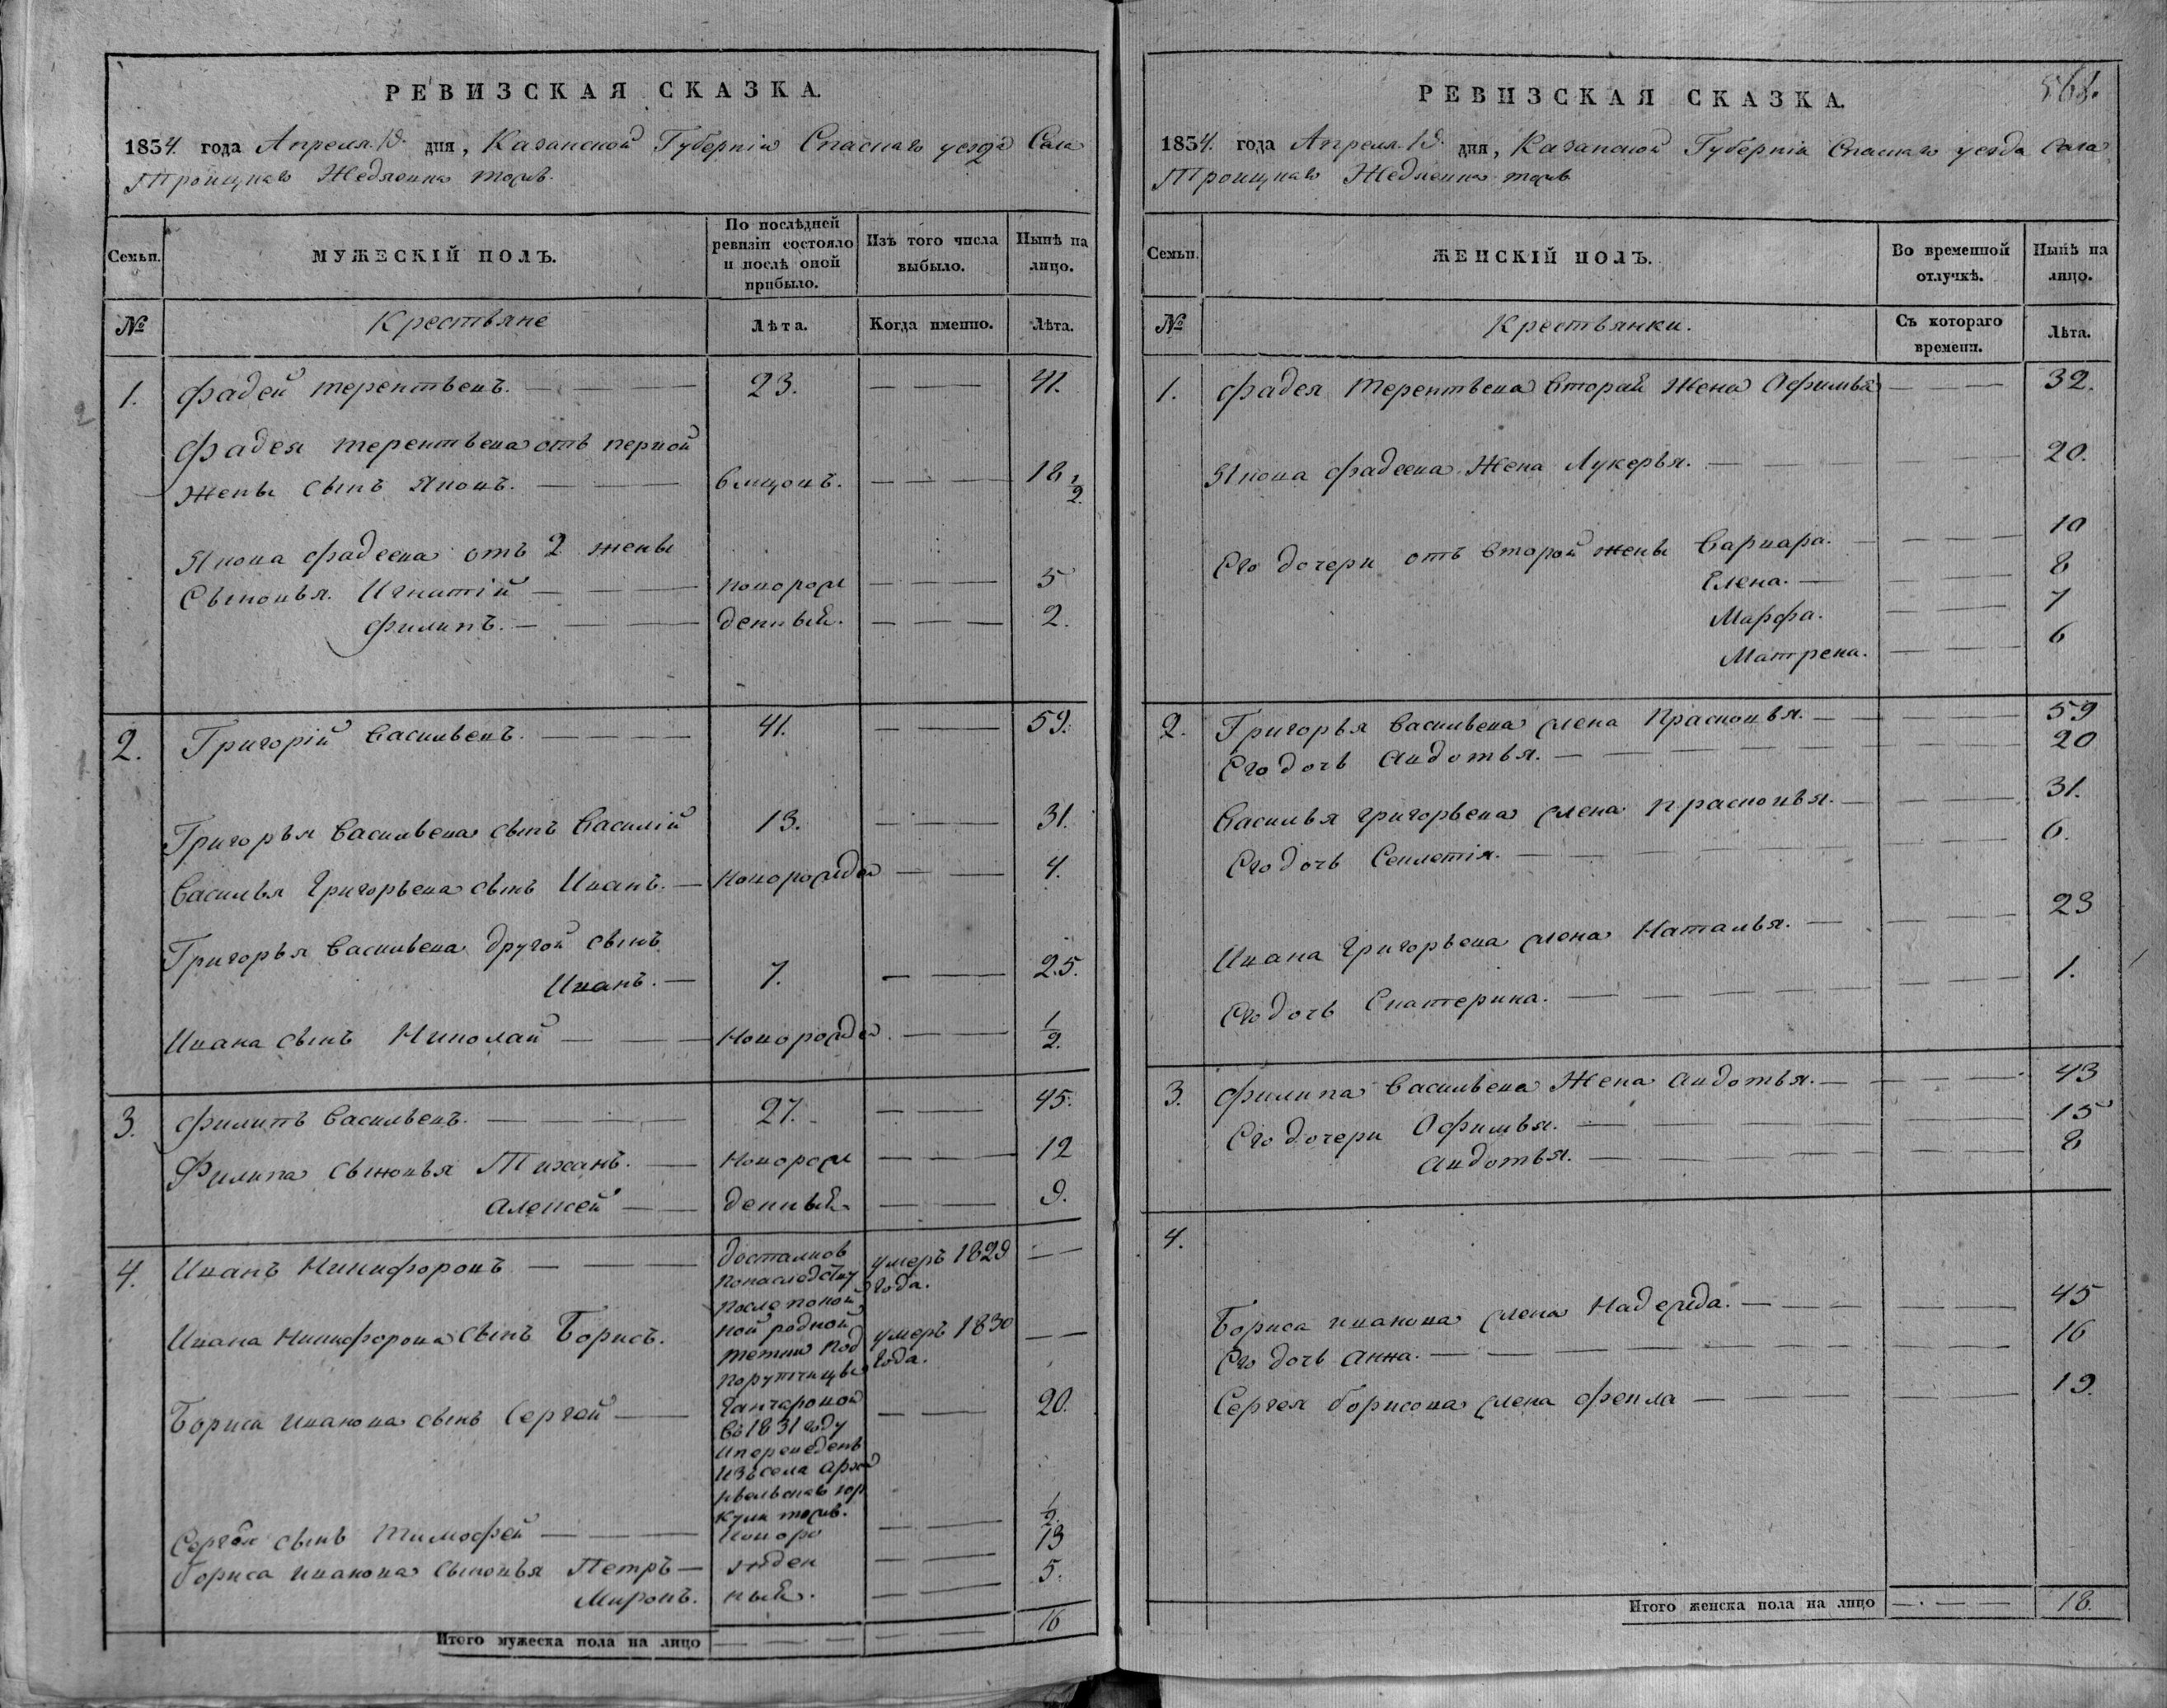 РЕВИЗСКАЯ СКАЗКА.
1834. года Апреля 18. дня, Казанской Губернiи Спаскаго уезда Села
Троицкаго Жедяевка тожъ.
Семьи.
МУЖЕСКІЙ ПОЛЪ.
По послѣдней ревизіи состояло и послѣ оной прибыло.
Изъ того числа выбыло.
Нынѣ на лицо.
№
Крестьяне
Лѣта.
Когда именно.
Лѣта.
1. Фадей Терентьевъ. 23. 41.
Фадея Терентьева отъ первой
жены сынъ Яковъ. 6 мцовъ. 18 1/2
Якова Фадеева отъ 2 жены
Сыновья. Игнатiй новорож 5
Филипъ. денныя. 2.
2. Григорiй Васильевъ. 41. 59.
Григорья Васильева сынъ Василiй 13. 31.
Василья Григорьева сынъ Иванъ. Новорожде 4.
Григорья Васильева другой сынъ
Иванъ. 7. 25.
Ивана сынъ Николай Новорожде 1/2
3. Филипъ Васильевъ. 27. 45.
Филипа Сыновья Тиханъ. Новорож 12
Алексей денныя. 9.
4. Иванъ Никифоровъ умеръ 1829 года.
Ивана Никифорова сынъ Борисъ. умеръ 1830 года.
Бориса Иванова сынъ Сергей 20.
Достались
понаследству
после покой
ной родной
тетки Под
порутчицы
Ганчаровой
въ 1831 году
и переведенъ
изъ села Арха
нгельскаго
тожъ.
Сергея сынъ Тимофей Новоро 1/2
Бориса Иванова Сыновья Петръ жден 13
Миронъ. ныя. 5.
Итого мужеска пола на лицо 16
568.
РЕВИЗСКАЯ СКАЗКА.
1834. года Апреля 18. дня, Казанской Губернiи Спаскаго уезда Села
Троицкаго Жедяевка тожъ
Семьи.
ЖЕНСКІЙ ПОЛЪ.
Во временной отлучкѣ.
Нынѣ на лицо.
№
Крестьянки.
Съ котораго времени.
Лѣта.
1. Фадея Терентьева вторая Жена Офимья 32.
Якова Фадеева Жена Лукерья. 20.
Его дочери отъ второй жены Варвара. 10
Елена. 8
Марфа. 7
Матрена. 6
2. Григорья Васильева жена Прасковья. 59
Его дочь Авдотья. 20
Василья Григорьева жена Прасковья. 31.
Его дочь 6.
Ивана Григорьева жена Наталья. 23
Его дочь Екатерина. 1.
3. Филипа Васильева Жена Авдотья. 43
Его дочери Офимья. 15
Авдотья. 8
4.
Бориса Иванова жена Надежда. 45
Его дочь Анна. 16
Сергея Борисова жена Фекла 19.
Итого женска пола на лицо 18.